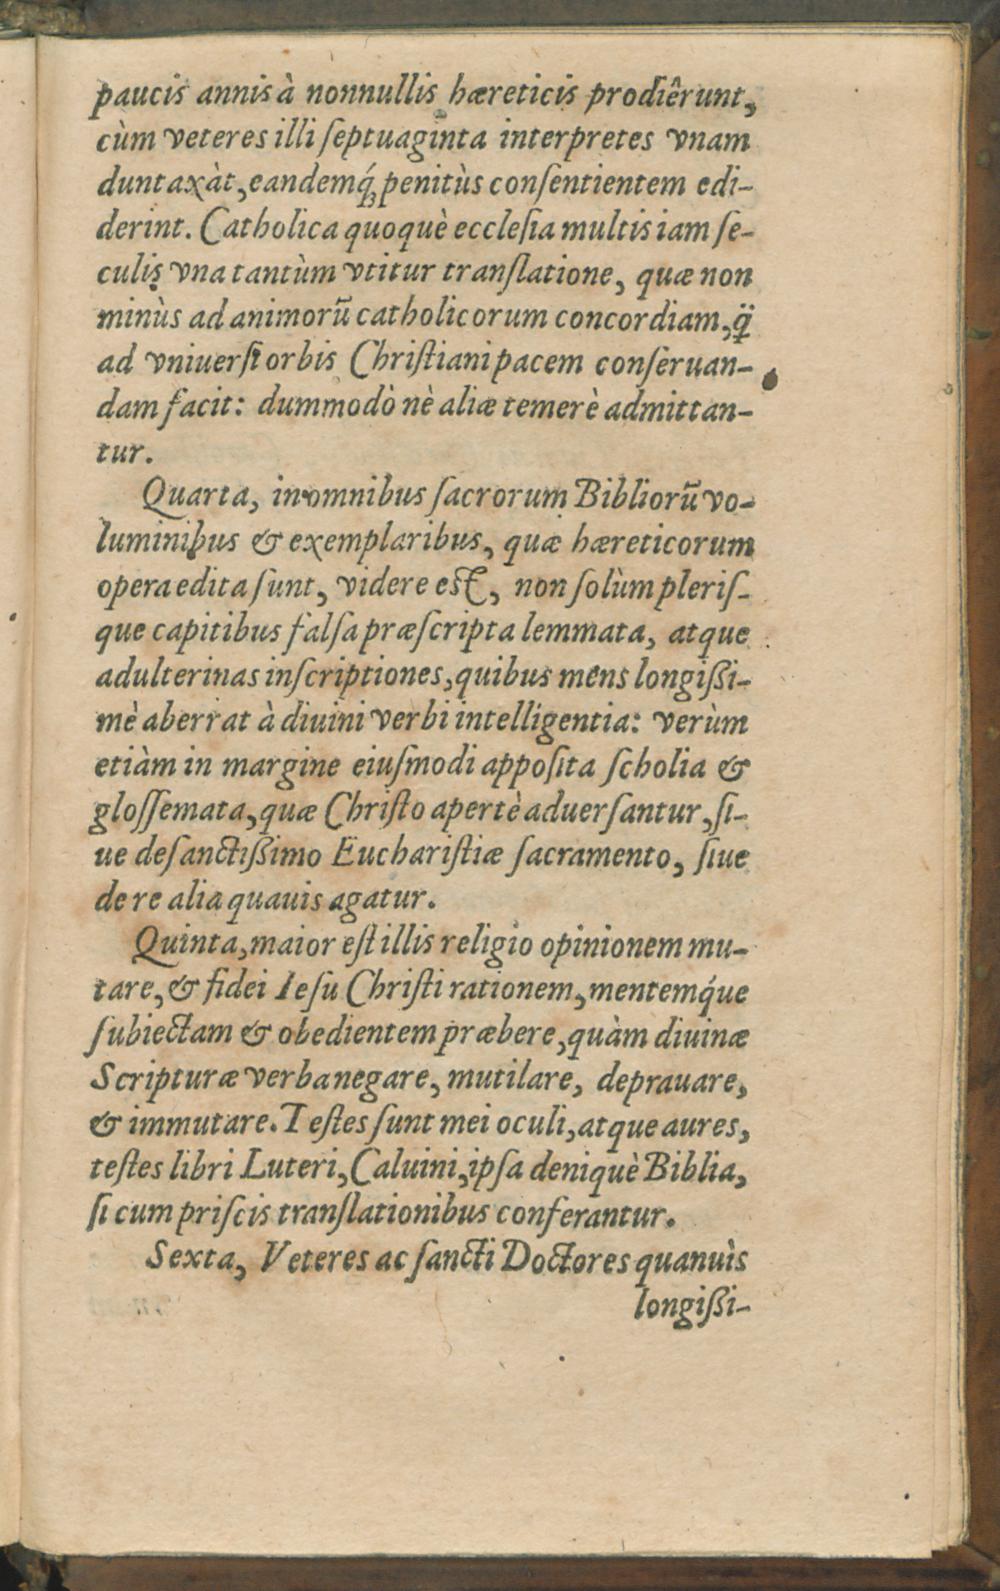 paucis annis à nonnullis hæreticis prodiêrunt,
cùm veteres illi ſeptuaginta interpretes vnam
duntaxàt, eandemq́; penitùs conſentientem edi-
derint. Catholica quoquè eccleſia multis iam ſe-
culis vna tantùm vtitur tranſlatione, quæ non
minùs ad animorũ catholicorum concordiam, q̈
ad vniuerſi orbis Chriſtiani pacem conſeruan-
dam facit: dummodò nè aliæ temerè admittan-
tur.
Quarta, in omnibus ſacrorum Bibliorũ vo-
luminibus & exemplaribus, quæ hæreticorum
opera edita ſunt, videre eſt, non ſolùm pleriſ-
que capitibus falſa præſcripta lemmata, atque
adulterinas inſcriptiones, quibus mens longißi-
mè aberrat à diuini verbi intelligentia: verùm
etiàm in margine eiuſmodi appoſita ſcholia &
gloſſemata, quæ Chriſto apertè aduerſantur, ſi-
ue de ſanctißimo Euchariſtiæ ſacramento, ſiue
de re alia quauis agatur.
Quinta, maior eſt illis religio opinionem mu-
tare, & fidei Ieſu Chriſti rationem, mentemq́ue
ſubiectam & obedientem præbere, quàm diuinæ
Scripturæ verba negare, mutilare, deprauare,
& immutare. Teſtes ſunt mei oculi, atque aures,
teſtes libri Luteri, Caluini, ipſa deniquè Biblia,
ſi cum priſcis tranſlationibus conferantur.
Sexta, Veteres ac ſancti Doctores quanuìs
longißi-